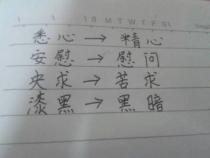 悉心→精心
安慰→慰问
央求→苦求
漆黑→黑暗